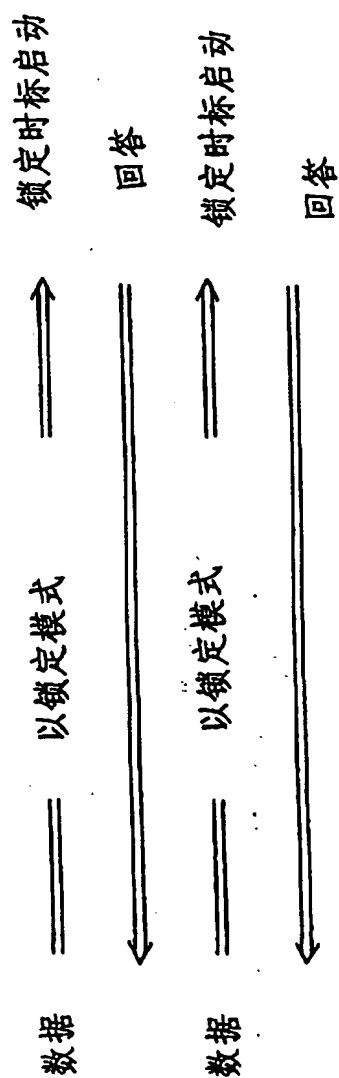 数据 以锁定模式 锁定时标启动
回答
数据 以锁定模式 锁定时标启动
回答